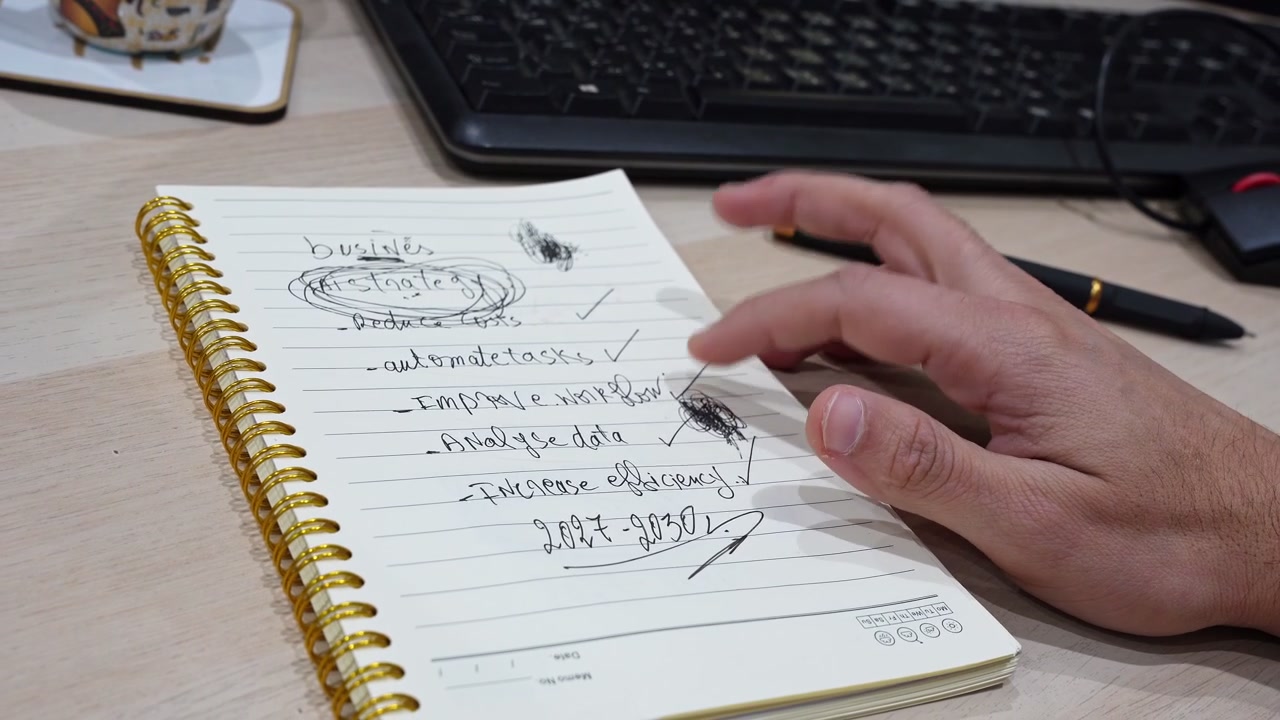 busines
strategy
- Reduce costs ✓
- automate tasks ✓
- Improve workflow ✓
- Analyse data ✓
- Increase efficiency ✓
2027-2030
Mo Tu We Th Fr Sa Su
Date.
Memo No.